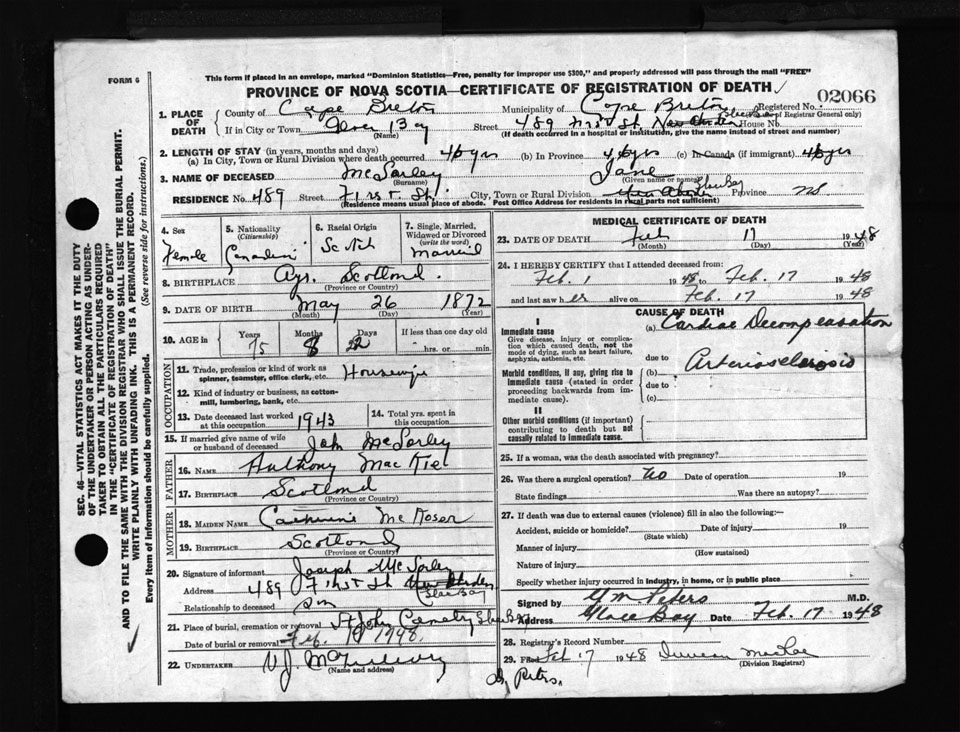 FORM 6
This form if placed in an envelope, marked "Dominion Statistics—Free, penalty for improper use $300," and properly addressed will pass through the mail "FREE"
PROVINCE OF NOVA SCOTIA—CERTIFICATE OF REGISTRATION OF DEATH
02066
1. PLACE OF DEATH County of Cape Breton Municipality of Cape Breton Registered No. (of Registrar General only)
If in City or Town Glace Bay (Name) Street 489 First St. House No.
(If death occurred in a hospital or institution, give the name instead of street and number)
2. LENGTH OF STAY (in years, months and days)
(a) In City, Town or Rural Division where death occurred 46 yrs (b) In Province 46 yrs (c) In Canada (if immigrant) 46 yrs
3. NAME OF DECEASED McSorley (Surname) Jane (Given name or names)
RESIDENCE No. 489 Street First St. City, Town or Rural Division New Aberdeen Glace Bay Province N.S.
(Residence means usual place of abode. Post Office Address for residents in rural parts not sufficient)
4. Sex Female
5. Nationality (Citizenship) Canadian
6. Racial Origin Scotch
7. Single, Married, Widowed or Divorced (write the word) Married
8. BIRTHPLACE Ayr. Scotland. (Province or Country)
9. DATE OF BIRTH May (Month) 26 (Day) 1872 (Year)
10. AGE in Years 75 Months 8 Days 22 If less than one day old hrs. or min.
OCCUPATION
11. Trade, profession or kind of work as spinner, teamster, office clerk, etc. Housewife
12. Kind of industry or business, as cotton-mill, lumbering, bank, etc.
13. Date deceased last worked at this occupation 1943
14. Total yrs. spent in this occupation
15. If married give name of wife or husband of deceased John McSorley
FATHER
16. NAME Anthony Mac Kie
17. BIRTHPLACE Scotland (Province or Country)
MOTHER
18. MAIDEN NAME Catherine
19. BIRTHPLACE Scotland (Province or Country)
20. Signature of informant Joseph McSorley
Address 489 First St New Aberdeen Glace Bay
Relationship to deceased Son
21. Place of burial, cremation or removal St John Cemetry Glace Bay
Date of burial or removal Feb. 1948.
22. UNDERTAKER V.J. (Name and address)
MEDICAL CERTIFICATE OF DEATH
23. DATE OF DEATH Feb (Month) 17 (Day) 1948 (Year)
24. I HEREBY CERTIFY that I attended deceased from:
Feb. 1 1948 to Feb. 17 1948
and last saw her alive on Feb. 17 1948
CAUSE OF DEATH
I
Immediate cause
Give disease, injury or complication which caused death, not the mode of dying, such as heart failure, asphyxia, asthenia, etc.
(a) Cardiac Decompensation
due to
Morbid conditions, if any, giving rise to immediate cause (stated in order proceeding backwards from immediate cause).
(b) Arteriosclerosis
due to
(c)
II
Other morbid conditions (if important) contributing to death but not causally related to immediate cause.
25. If a woman, was the death associated with pregnancy?
26. Was there a surgical operation? No Date of operation 19
State findings Was there an autopsy?
27. If death was due to external causes (violence) fill in also the following:—
Accident, suicide or homicide? (State which) Date of injury 19
Manner of injury (How sustained)
Nature of injury
Specify whether injury occurred in industry, in home, or in public place
Signed by Peters M.D.
Address Glace Bay Date Feb. 17 1948
28. Registrar's Record Number
29. Filed Feb 17 1948 Duncan MacRae (Division Registrar)
By Peters.
SEC. 46—VITAL STATISTICS ACT MAKES IT THE DUTY
OF THE UNDERTAKER OR PERSON ACTING AS UNDERTAKER TO OBTAIN ALL THE PARTICULARS REQUIRED
IN THE "CERTIFICATE OF REGISTRATION OF DEATH"
AND TO FILE THE SAME WITH THE DIVISION REGISTRAR WHO SHALL ISSUE THE BURIAL PERMIT.
WRITE PLAINLY WITH UNFADING INK. THIS IS A PERMANENT RECORD.
Every item of information should be carefully supplied. (See reverse side for instructions.)